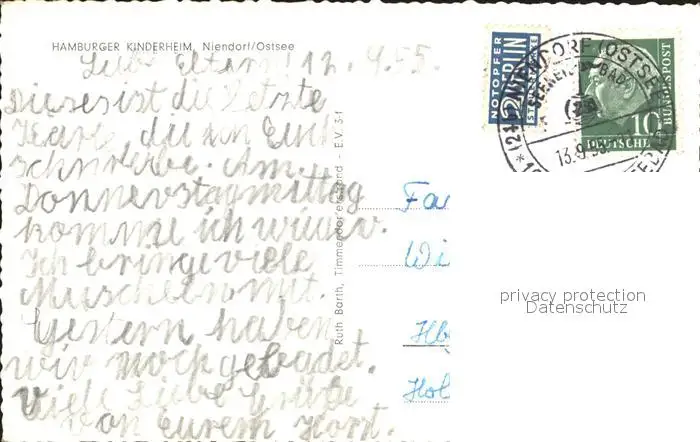 HAMBURGER KINDERHEIM, Niendorf/Ostsee
Liebe Eltern! 12. 9. 55.
Dieses ist die letzte
Karte die an Euch
schreibe. Am
Donnerstagmittag
komme ich wieder.
Ich bringe viele
Muscheln mit.
Gestern haben
wir noch gebadet.
Viele Liebe Grüße
von Eurem Horst.
Ruth Barth, Timmendorferstrand - E.V. 34
NOTOPFER
2 BERLIN
STEUERMARKE
NIENDORF (OSTSEE)
13.9.55
10
DEUTSCHE
BUNDESPOST
Fa
Wi
Hb
Hol
privacy protection
Datenschutz